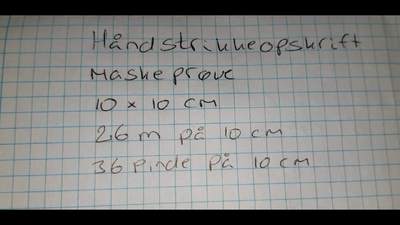 Håndstrikkeopskrift
Maskeprøve
10 x 10 cm
26 m på 10 cm
36 pinde på 10 cm